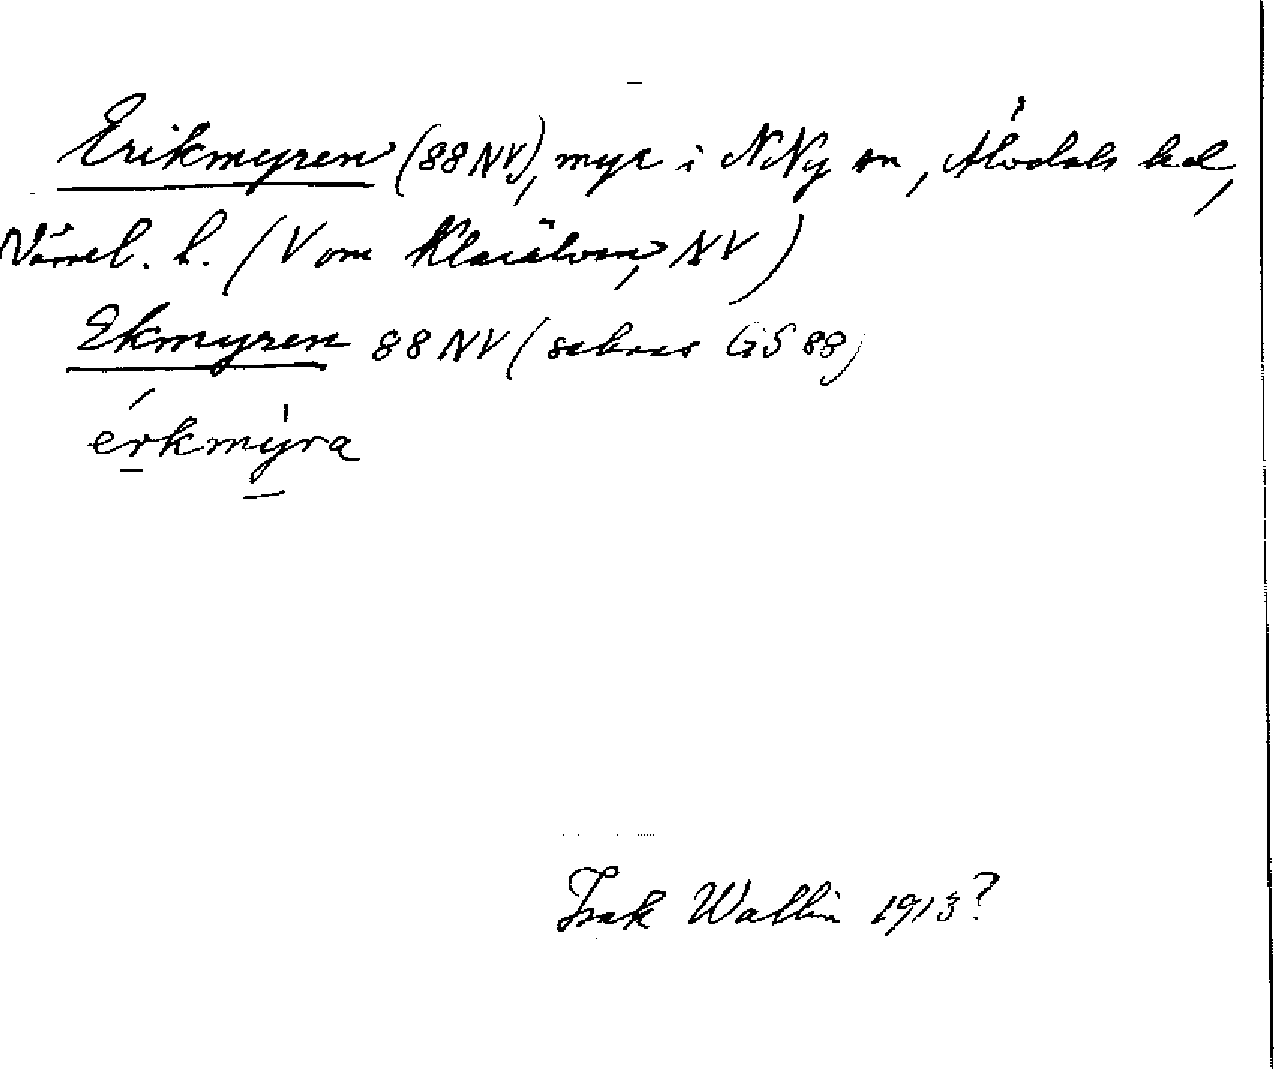 Erikmyren (88NV), myr i NNy sn, Älvdals hd,
Värml. l. (V om Klarälven, NV)
Ekmyren 88 NV (saknas GS 88)
érkmýra
Isak Wallin 1913?